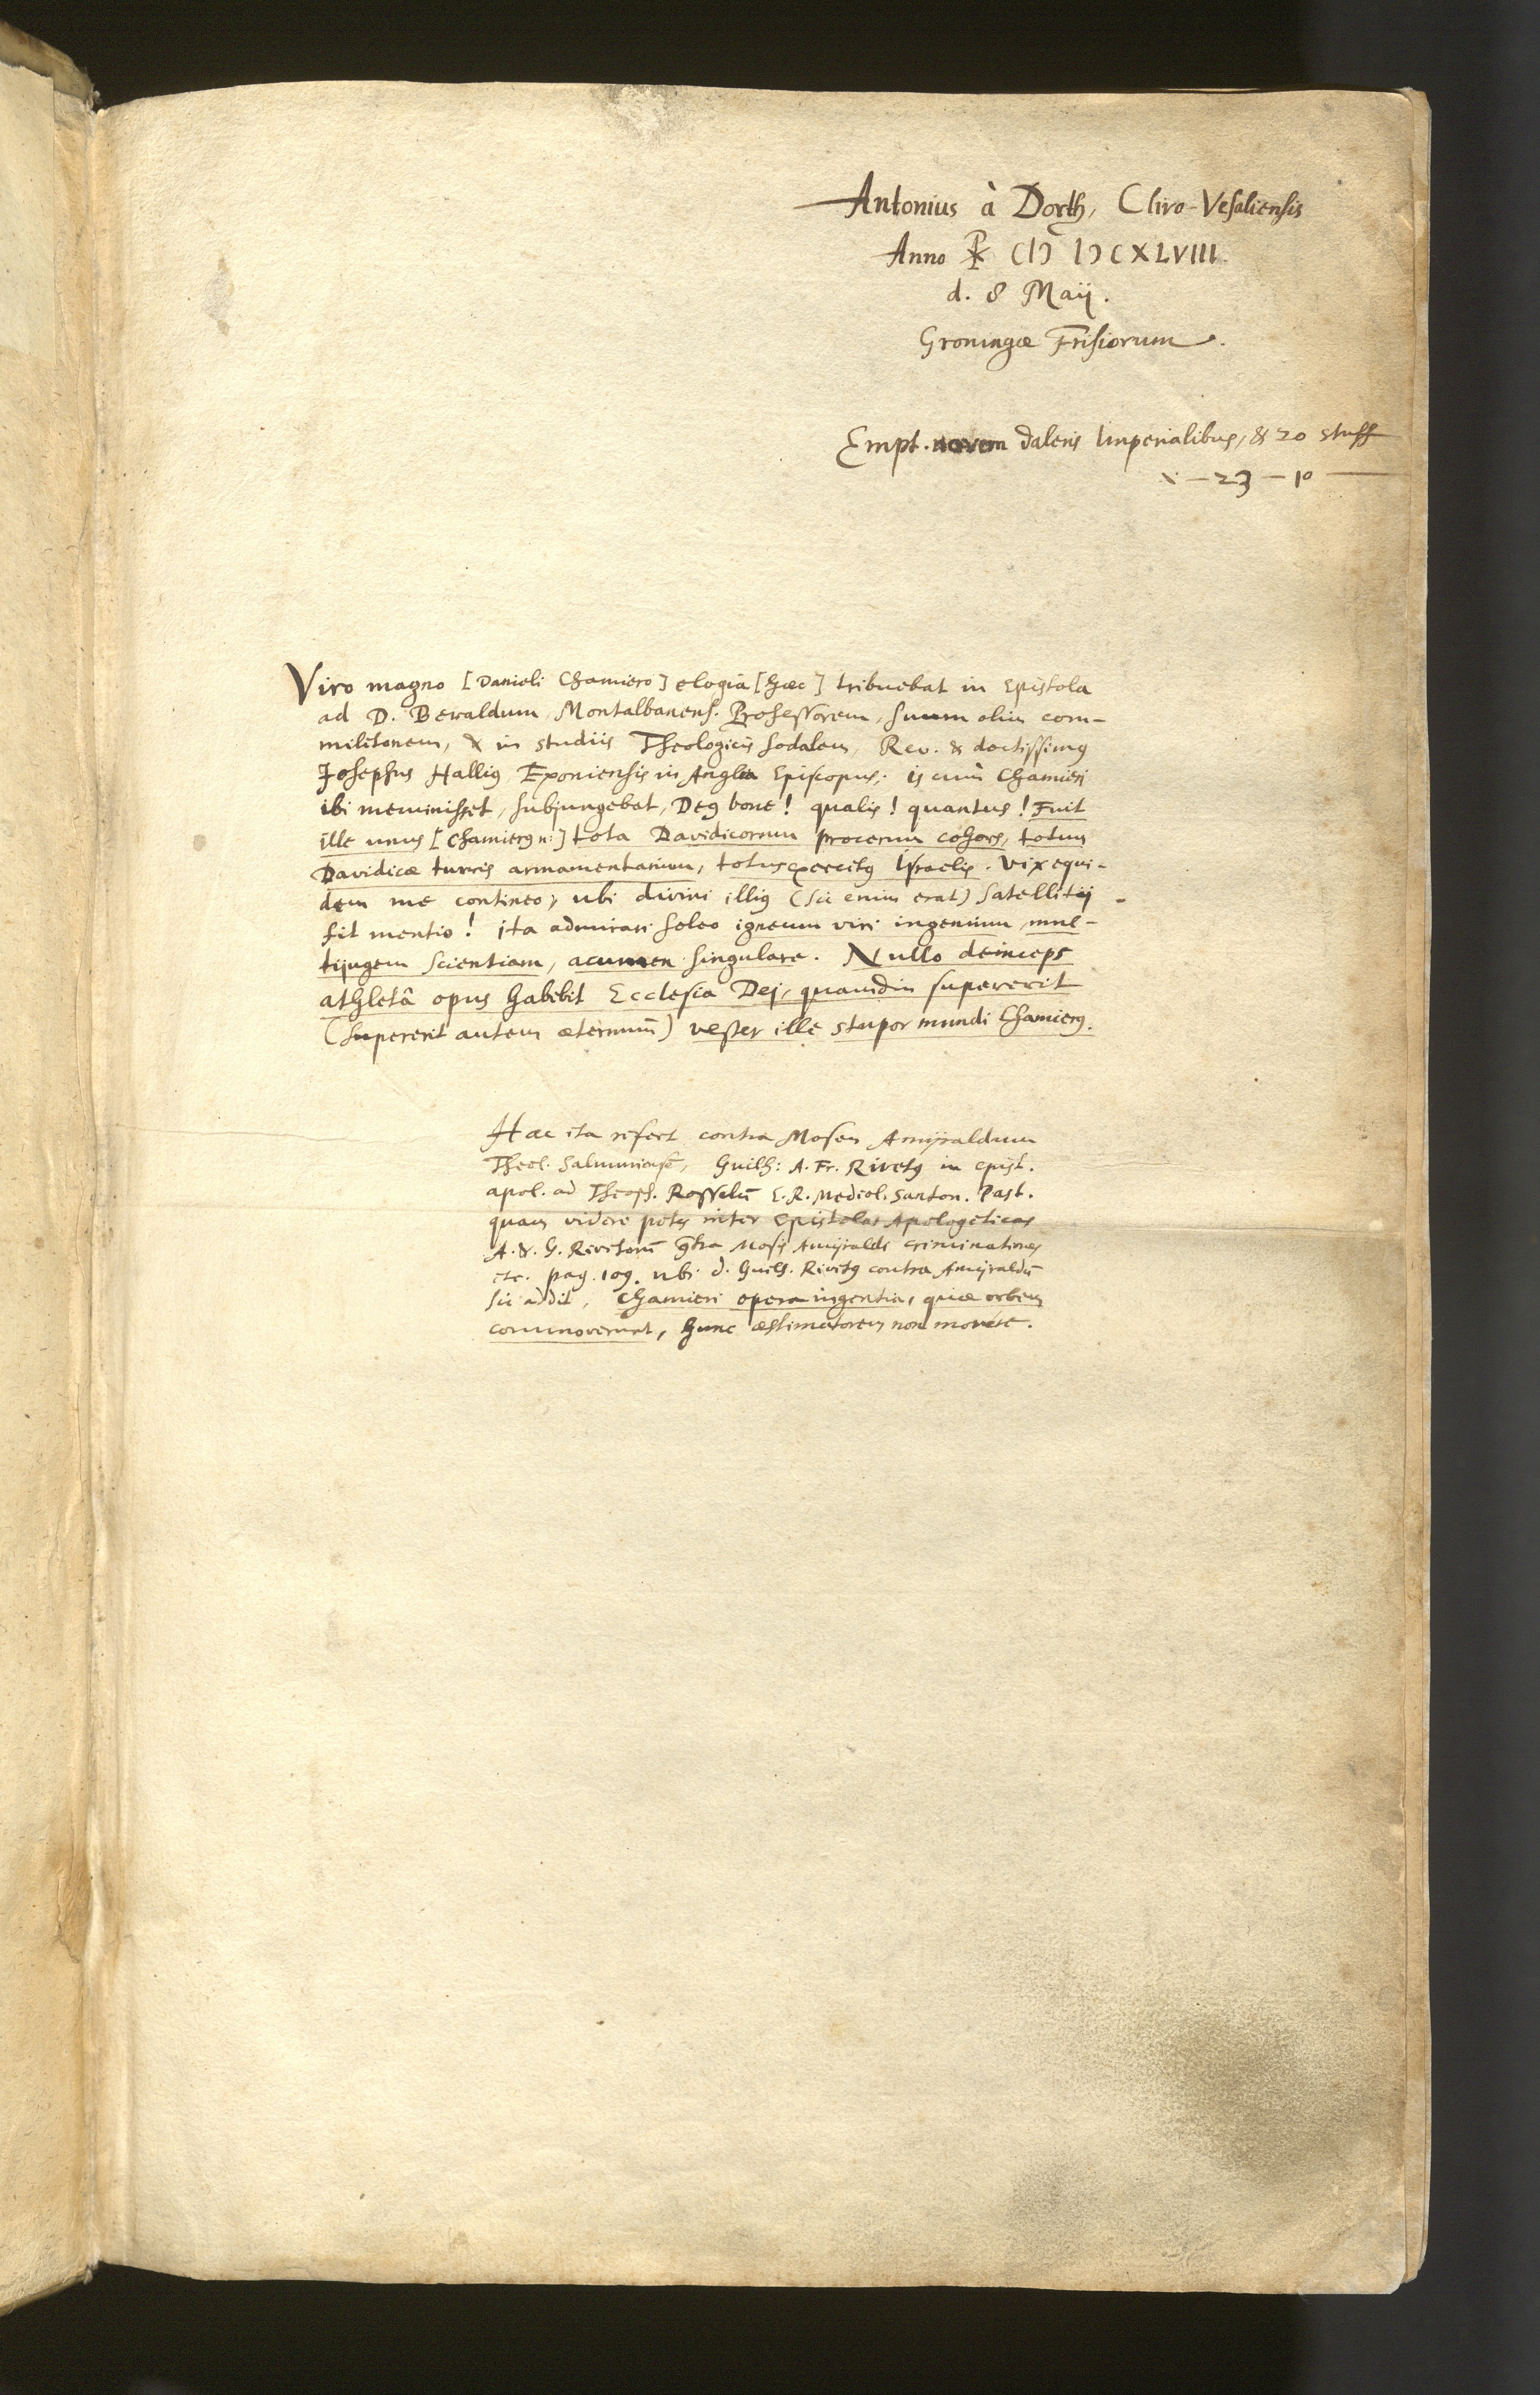 Antonius à Dorth, Clivo-Vesaliensis
Anno ☧ CIƆ IƆCXLVIII.
d. 8 Maij.
Groningæ Frisiorum.
Empt. novem daleris Imperialibus, & 20 stuff
x - 23 - 10
Viro magno [Danieli Chamiero] elogia [hæc] tribuebat in Epistola
ad D. Beraldum, Montalbanens. Professorem, suum olim com-
militonem, & in studiis Theologicis sodalem, Rev. & doctissimꝰ
Josephus Halliꝰ Exoniensis in Anglia Episcopus; is cum Chamieri
ibi meminisset, subjungebat, Deꝰ bone! qualis! quantus! Fuit
ille unus [Chamierꝰ n:] tota Davidicorum procerum cohors, totum
Davidicæ turris armamentarium, totus exercitꝰ Israelis. Vix equi-
dem me contineo, ubi divini illiꝰ (sic enim erat) satellitij
fit mentio! ita admirari soleo igneum viri ingenium, mul-
tijugem scientiam, acumen singulare. Nullo deinceps
athletâ opus habebit Ecclesia Dej, quamdiu supererit
(supererit autem æternum̄) vester ille stupor mundi Chamierꝰ.
Hæc ita refert contra Mosen Amyraldum
Theol. Salmuriensē, Guilh: A. Fr. Rivetꝰ in epist.
apol. ad Theoph. Rosselū E. R. Mediol. Santon. Past.
quam videre potes inter Epistolas Apologeticas
A. & G. Rivetorū 9tra Mosis Amyraldi criminationes
etc. pag. 109. ubi d. Guilh. Rivetꝰ contra Amyraldū
sic addit, Chamieri opera ingentia, quæ orbem
commoverunt, hunc æstimatorem non movere.